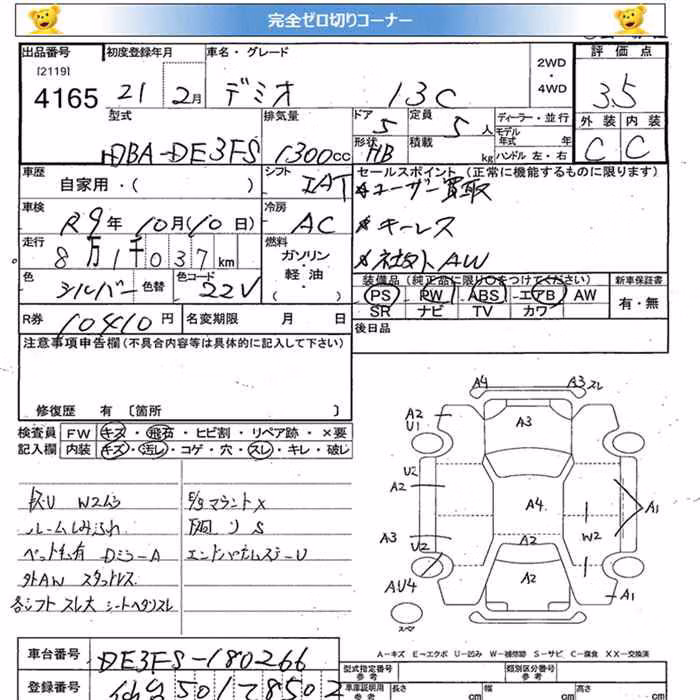 完全ゼロ切りコーナー
出品番号 初度登録年月 車名・グレード 2WD・4WD 評価点
[2119]
4165 21 2月 デミオ 13C 3.5
型式 排気量 ドア 定員 ディーラー・並行 外装 内装
DBA-DE3FS 1300cc 5 5人 モデル年式 年 C C
形状 積載 kg ハンドル 左・右
HB
車歴 シフト セールスポイント (正常に機能するものに限ります)
自家用・( ) IAT *ユーザー買取
車検 冷房 *キーレス
R9年 10月(10日) AC
走行 燃料 *社外AW
8万1千037km ガソリン・軽油・( )
色 色替 色コード
シルバー 22V
装備品 (純正品に限り○をつけてください) 新車保証書
PS PW ABS エアB AW 有・無
SR ナビ TV カワ
R券 10410円 名変期限 月 日 後日品
注意事項申告欄(不具合内容等は具体的に記入して下さい)
修復歴 有 〔箇所 〕
検査員 FW キズ・飛石・ヒビ割・リペア跡・×要
記入欄 内装 キズ・汚レ・コゲ・穴・スレ・キレ・破レ
W2
ルームしみ
D ミラーA
外AW スタッドレス
各シフト スレ大 シートヘタリスレ
マウント×
下回りS
A4 A3スレ
A2 U1 A3
U2 A2 A4 A1
A3 U2 A2 W2
AU4 A2 A1
スペア
A-キズ E-エクボ U-凹み W-補修跡 S-サビ C-腐食 XX-交換済
車台番号 DE3FS-180266
型式指定番号 参考 類別区分番号 参考
登録番号 仙台501 8502
車庫証明用 参考 長さ cm 幅 cm 高さ cm